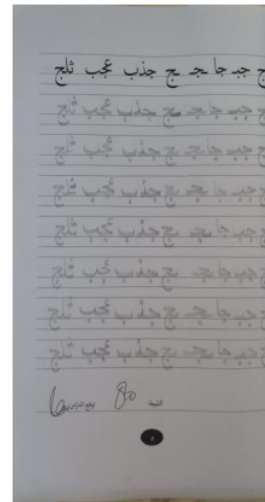 جبـ جا ـجـ ـج جذب عجب ثلج
جبـ جا ـجـ ـج جذب عجب ثلج
جبـ جا ـجـ ـج جذب عجب ثلج
جبـ جا ـجـ ـج جذب عجب ثلج
جبـ جا ـجـ ـج جذب عجب ثلج
جبـ جا ـجـ ـج جذب عجب ثلج
جبـ جا ـجـ ـج جذب عجب ثلج
جبـ جا ـجـ ـج جذب عجب ثلج
80